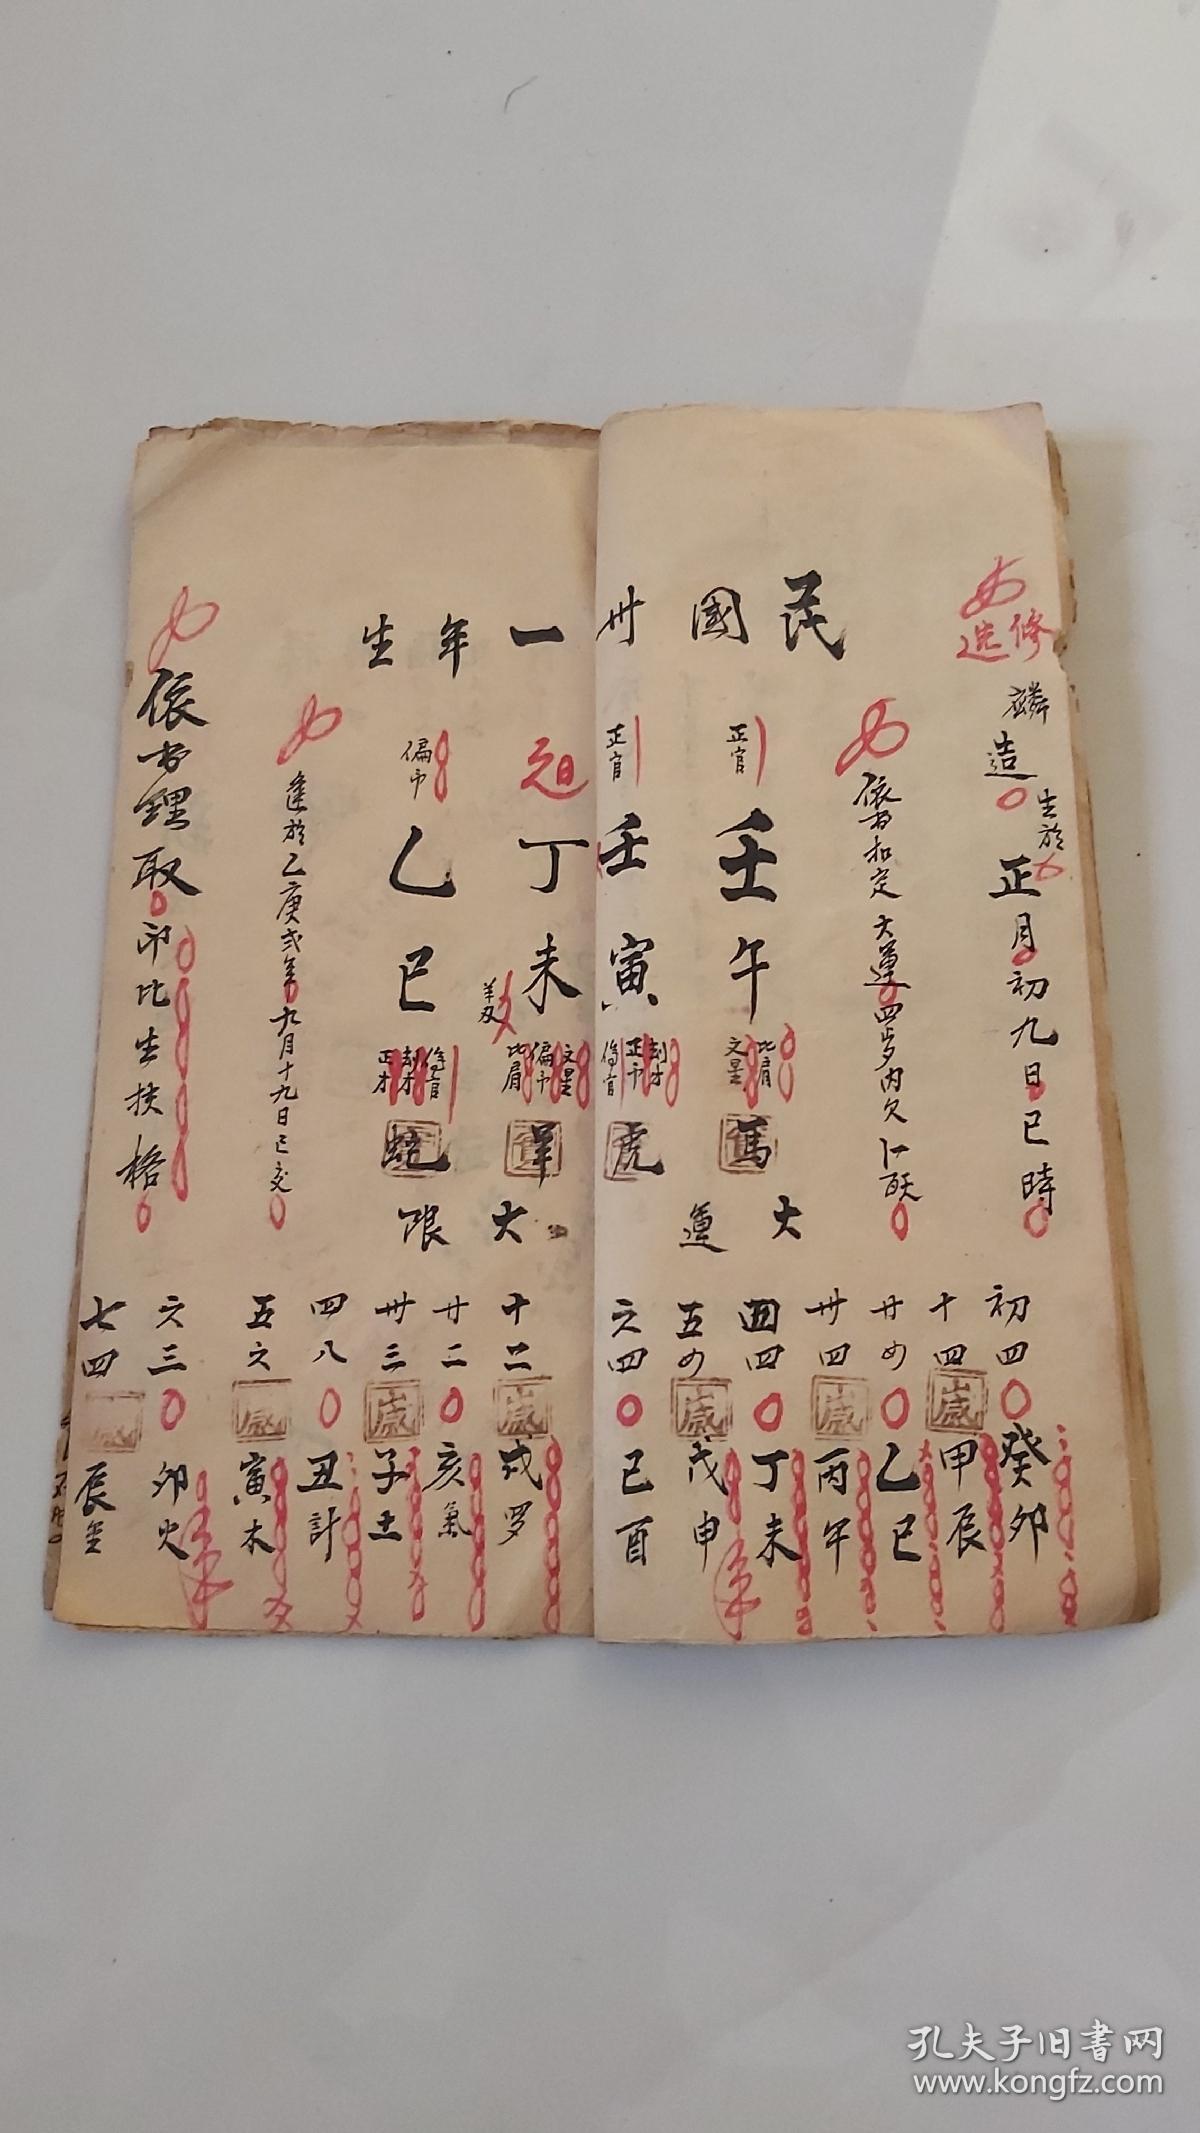 修造
麟造
生於
正月初九日巳時
依書扣定大運四岁内欠
民國卅一年生
正官
壬午
比肩
文星
馬
正官
壬寅
劫才
正卩
傷官
虎
元日
丁未
羊刃
文星
偏卩
比肩
羊
偏卩
乙巳
傷官
劫才
正才
蛇
大運
大限
逢於乙庚弍年九月十九日已交
依書理取卩比生扶格
初四癸卯
十四歲甲辰
廿四乙巳
卅四歲丙午
四四丁未
五四歲戊申
六四己酉
十二歲戌罗
廿二亥氣
卅三歲子土
四八丑計
五六歲寅木
六三卯火
七四歲辰金
孔夫子旧书网
www.kongfz.com